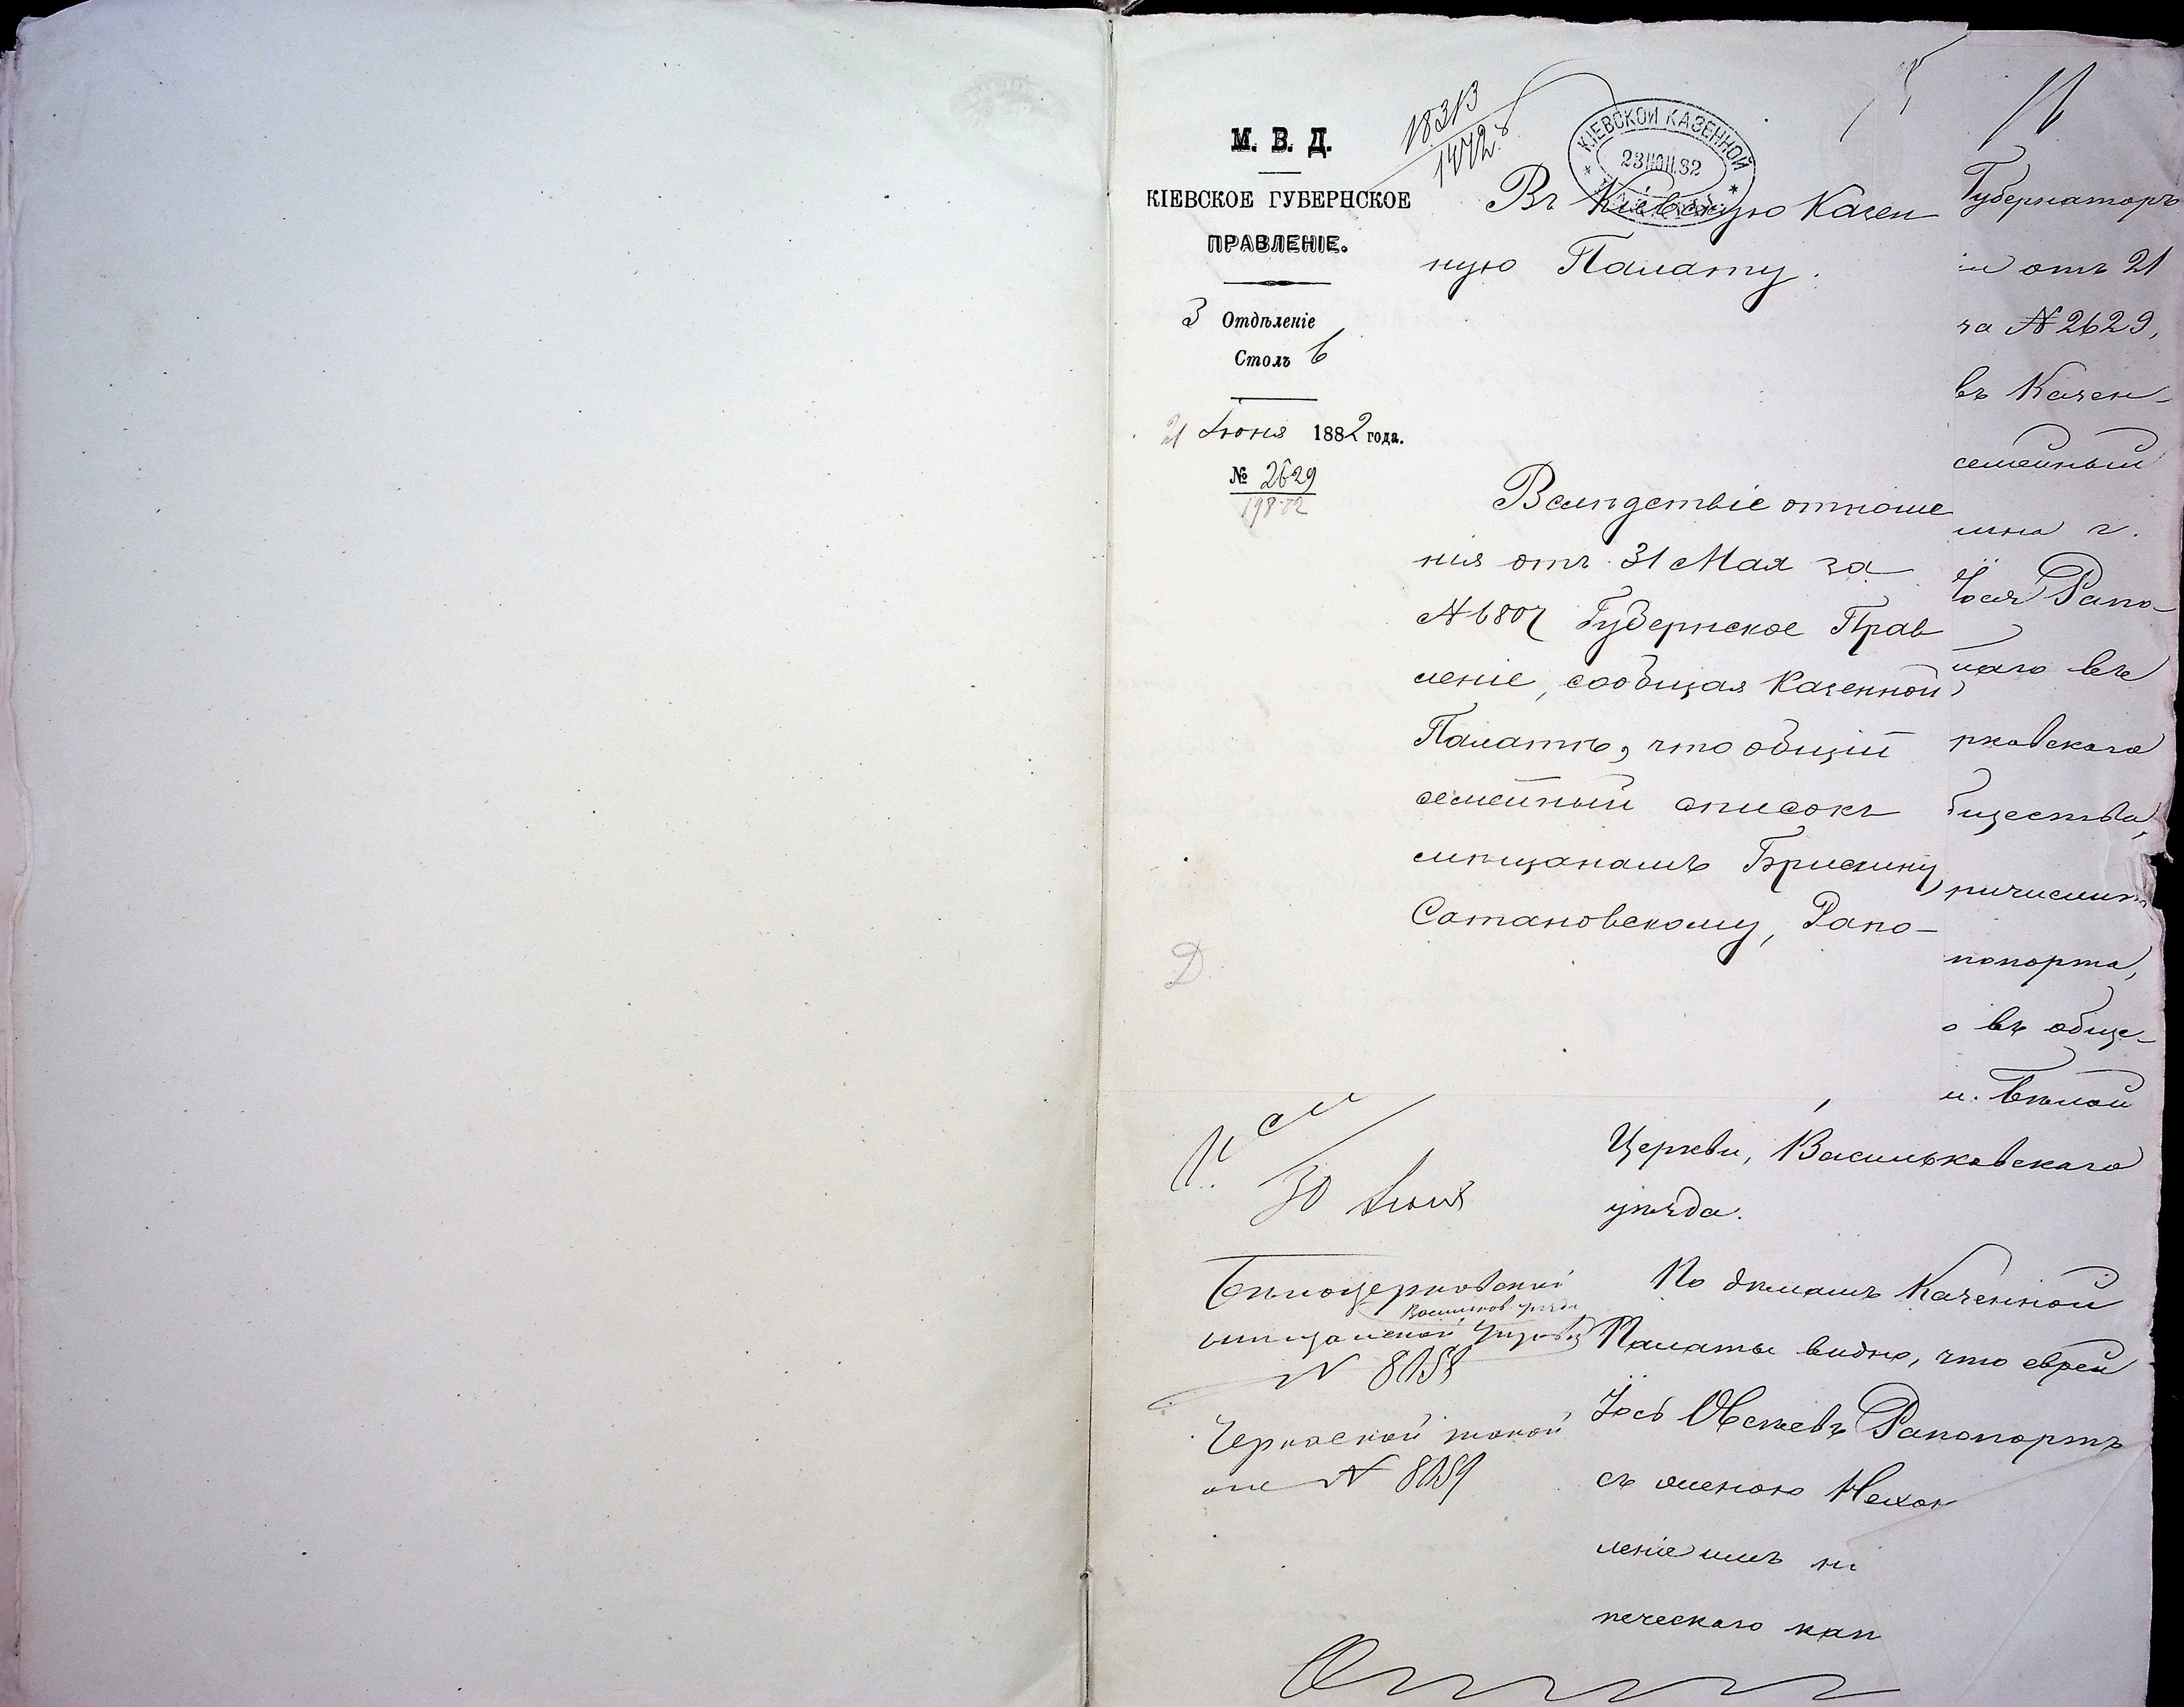 М. В. Д.
КІЕВСКОЕ ГУБЕРНСКОЕ
ПРАВЛЕНІЕ.
3 Отдѣленіе
Столъ 6
21 Іюня 1882 года.
№ 2629
198-82
18313
1472
КІЕВСКОЙ КАЗЕННОЙ
23 ІЮН. 82
Въ Кіевскую Казен
ную Палату.
Вслѣдствіе отноше
нія отъ 31 Мая за
№ 6807 Губернское Прав
леніе, сообщая Казенной
Палатѣ, что общій
семейный списокъ
мѣщанамъ Брискину,
Сатановскому, Рапо-
Д.
Губернаторъ
отъ 21
за № 2629,
въ Казен-
семейный
г.
Іося Рапо-
наго въ
рковскаго
бщества,
ричислит
попорта,
о въ обще-
м. Бѣлой
Церкви, Васильковскаго
уѣзда.
По дѣламъ Казенной
Палаты видно, что еврей
Іось Рапопортъ
съ женою Нехою
леніемъ
печескаго кап
30 Іюня
Бѣлоцерковской
Васильков. уѣзда
мѣщанской Управѣ
№ 8058
Черкаской таковой
же № 8059